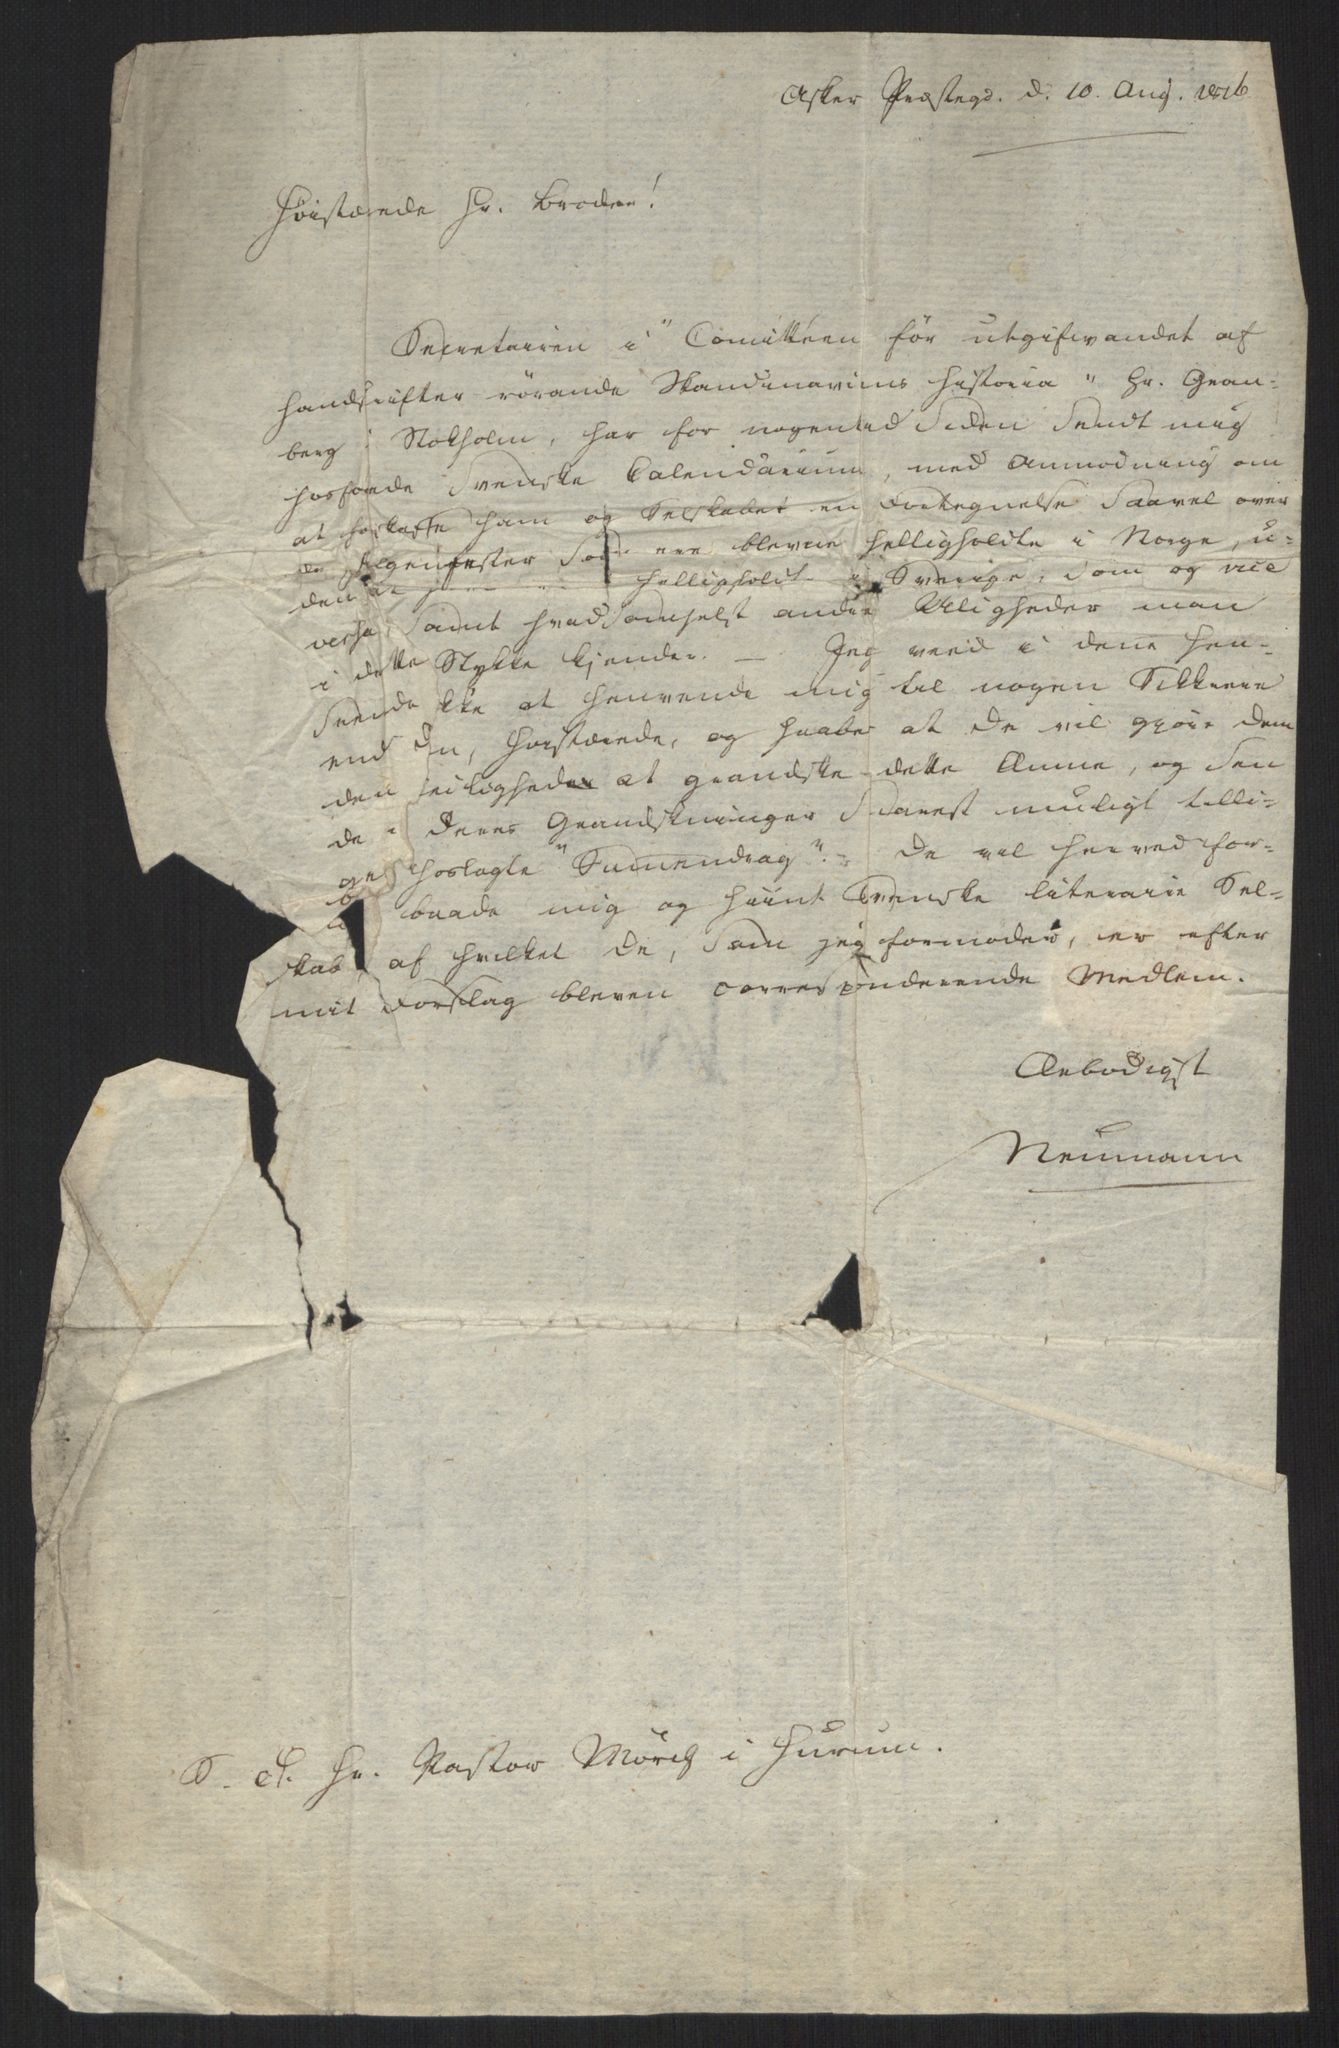 Asker Præstegd. d. 10. Aug. 1816
Høistærede Hr. Broder!
Secretairen i "Comittéen för utgifvandet af
handskrifter rörande Skandinaviens historia" Hr. Gran-
berg i Stokholm, har for nogentid siden sendt mig
hosføiede Svenske Calendarium, med Anmodning om
at forskaffe ham og Selskabet en Fortegnelse saavel over
de Helgenfester som ere blevne helligholdte i Norge, u-
den at helligholdt i Sverige, som og vice
versa, samt hvadsomhelst andre Uligheder man
i dette Stykke kjender. — Jeg veed i denne Hen-
seende ikke at henvende mig til nogen Sikkrere
end Dem, Høistærede, og haaber at De vil gjøre Dem
den Leilighed at grandske dette Æmne, og sen
de Deres Grandskninger snarest muligt tilli-
ge hoslagte "Sammendrag". De vil herved for-
baade mig og hiint Svenske literaire Sel-
skab, af hvilket De, som jeg formoder, er efter
mit Forslag bleven corresponderende Medlem.
Ærbødigst
Neumann
S. T. Hr. Pastor Mörch i Hurum.